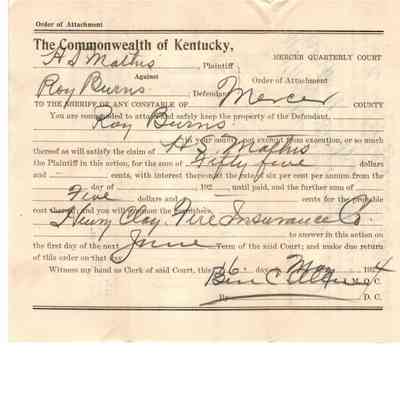 Order of Attachment
The Commonwealth of Kentucky,
MERCER QUARTERLY COURT
H D Mathis, Plaintiff
Against
Order of Attachment
Roy Burns, Defendant
TO THE SHERIFF OR ANY CONSTABLE OF Mercer COUNTY
You are commanded to attach and safely keep the property of the Defendant,
Roy Burns
in your county, not exempt from execution, or so much
thereof as will satisfy the claim of H. D. Mathis
the Plaintiff in this action, for the sum of Fifty five dollars
and — cents, with interest thereon at the rate of six per cent per annum from the
day of 192 until paid, and the further sum of
Five dollars and — cents for the probable
cost therein; and you will summon the garnishee,
Henry Clay Fire Insurance Co.
to answer in this action on
the first day of the next June Term of the said Court; and make due return
of this order on that day.
Witness my hand as Clerk of said Court, this 16 day May 1924
Ben C Allin Q. C.
By D. C.